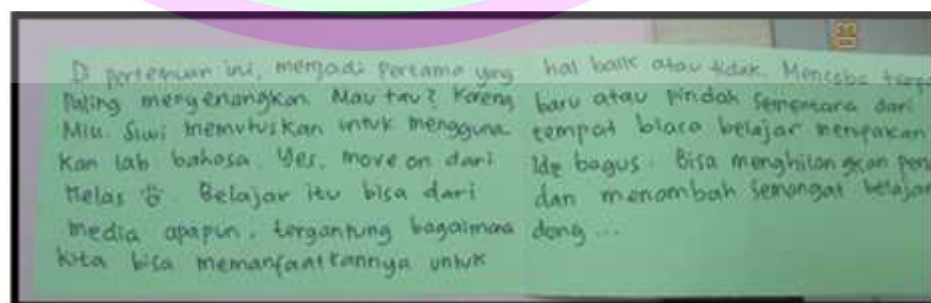 D pertemuan ini, menjadi pertama yang
Paling menyenangkan. Mau tau? Karena
Miu. Siwi memutuskan untuk mengguna
kan lab bahasa. Yes, move on dari
Kelas. Belajar itu bisa dari
media apapun, tergantung bagaimana
kita bisa memanfaatkannya untuk
hal baik atau tidak. Mencoba
baru atau pindah sementara dari
tempat biasa belajar merupakan
ide bagus. Bisa menghilangkan
dan menambah semangat belajar
dong ...